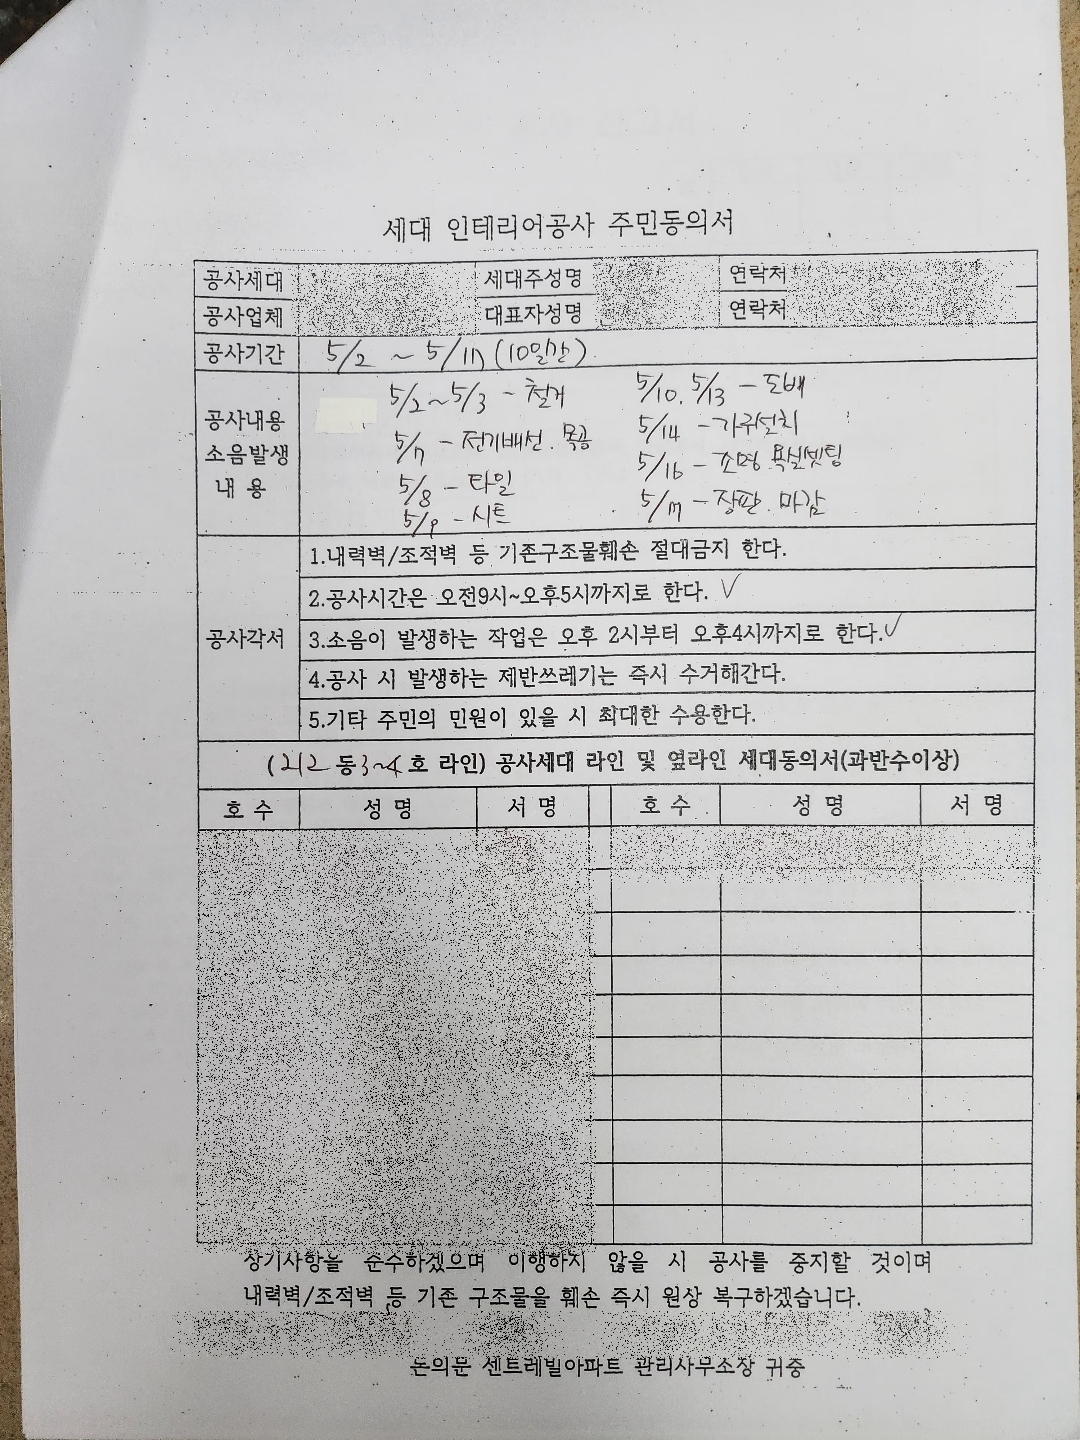 세대 인테리어공사 주민동의서
공사세대 세대주성명 연락처
공사업체 대표자성명 연락처
공사기간 5/2 ~ 5/17 (10일간)
공사내용
소음발생
내 용
5/2~5/3 - 철거
5/7 - 전기배선. 목공
5/8 - 타일
5/9 - 시트
5/10, 5/13 - 도배
5/14 - 가구설치
5/16 - 조명 욕실셋팅
5/17 - 장판. 마감
공사각서
1.내력벽/조적벽 등 기존구조물훼손 절대금지 한다.
2.공사시간은 오전9시~오후5시까지로 한다. ✓
3.소음이 발생하는 작업은 오후 2시부터 오후4시까지로 한다.✓
4.공사 시 발생하는 제반쓰레기는 즉시 수거해간다.
5.기타 주민의 민원이 있을 시 최대한 수용한다.
(212동3~4호 라인) 공사세대 라인 및 옆라인 세대동의서(과반수이상)
호 수 성 명 서 명 호 수 성 명 서 명
상기사항을 준수하겠으며 이행하지 않을 시 공사를 중지할 것이며
내력벽/조적벽 등 기존 구조물을 훼손 즉시 원상 복구하겠습니다.
돈의문 센트레빌아파트 관리사무소장 귀중